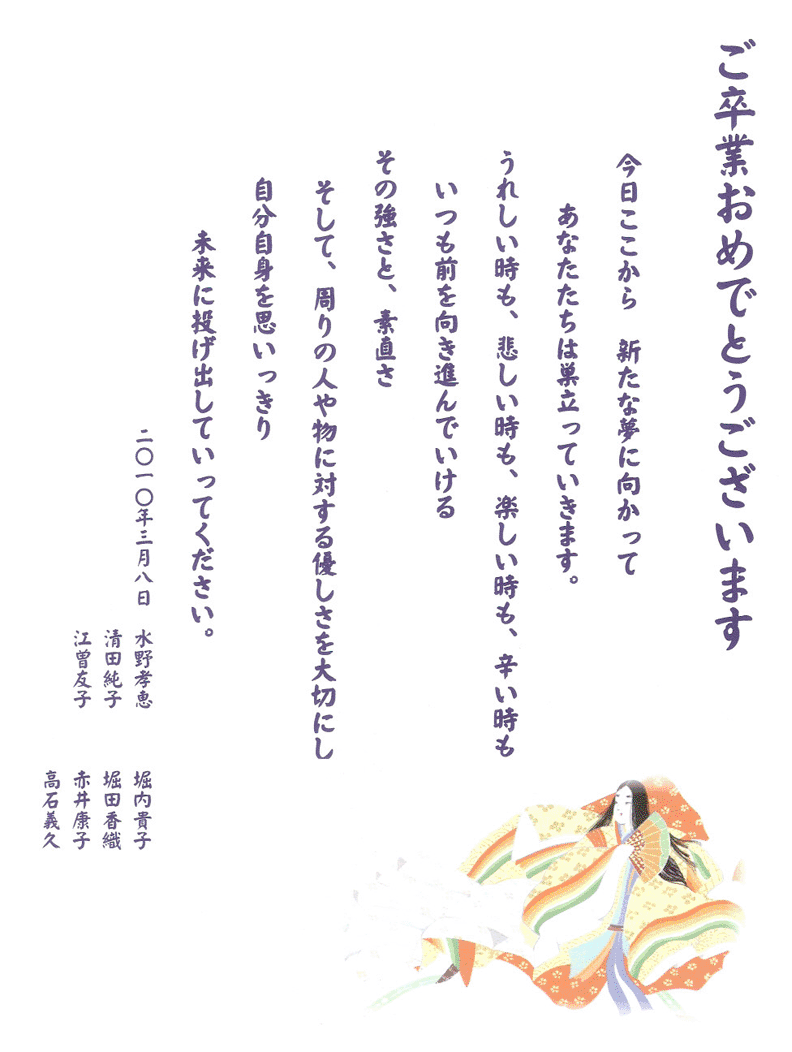 ご卒業おめでとうございます
今日ここから　新たな夢に向かって
あなたたちは巣立っていきます。
うれしい時も、悲しい時も、楽しい時も、辛い時も
いつも前を向き進んでいける
その強さと、素直さ
そして、周りの人や物に対する優しさを大切にし
自分自身を思いっきり
未来に投げ出していってください。
二〇一〇年三月八日
水野孝恵
清田純子
江曽友子
堀内貴子
堀田香織
赤井康子
高石義久